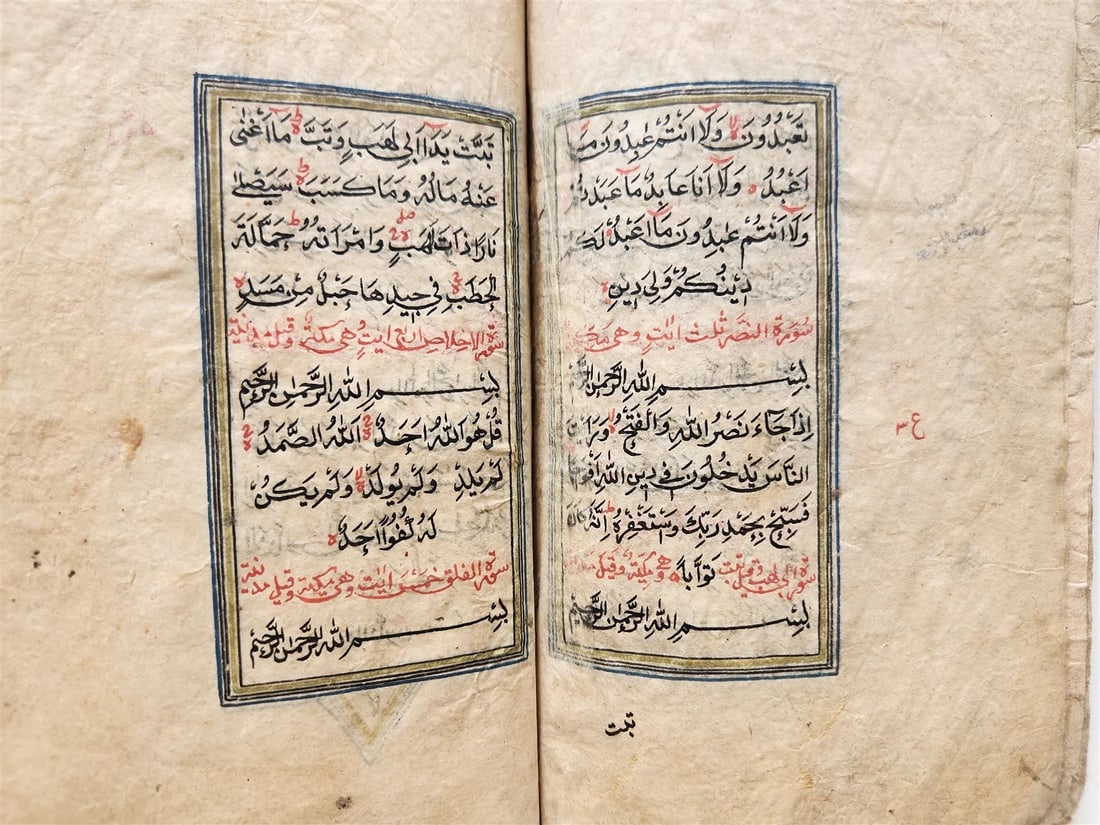 تَعْبُدُونَ ۙ وَلَآ اَنْتُمْ عٰبِدُونَ مَآ
اَعْبُدُ ۚ وَلَآ اَنَا عَابِدٌ مَا عَبَدْتُمْ
وَلَآ اَنْتُمْ عٰبِدُونَ مَآ اَعْبُدُ لَكُمْ
دِينُكُمْ وَلِيَ دِينِ
سورة النصر ثلث ايٰت وهى
بِسْمِ اللّٰهِ الرَّحْمٰنِ الرَّحِيْمِ
اِذَا جَاءَ نَصْرُ اللّٰهِ وَالْفَتْحُ ۙ وَرَاَيْتَ
النَّاسَ يَدْخُلُونَ فِي دِينِ اللّٰهِ اَفْوَاجًا
فَسَبِّحْ بِحَمْدِ رَبِّكَ وَاسْتَغْفِرْهُ ؕ اِنَّهُ كَانَ
تَوَّابًا
سورة ابى لهب وهى مكية وقيل
بِسْمِ اللّٰهِ الرَّحْمٰنِ الرَّحِيْمِ
تبت
ع
٣
تَبَّتْ يَدَآ اَبِي لَهَبٍ وَتَبَّ ؕ مَآ اَغْنٰى
عَنْهُ مَالُهُ وَمَا كَسَبَ ؕ سَيَصْلٰى
نَارًا ذَاتَ لَهَبٍ وَامْرَاَتُهُ ؕ حَمَّالَةَ
الْحَطَبِ فِي جِيدِهَا حَبْلٌ مِنْ مَسَدٍ
سورة الاخلاص اربع ايٰت وهى مكية وقيل مدنية
بِسْمِ اللّٰهِ الرَّحْمٰنِ الرَّحِيْمِ
قُلْ هُوَ اللّٰهُ اَحَدٌ اَللّٰهُ الصَّمَدُ
لَمْ يَلِدْ وَلَمْ يُولَدْ ۙ وَلَمْ يَكُنْ
لَهُ كُفُوًا اَحَدٌ
سورة الفلق خمس ايٰت وهى مكية وقيل مدنية
بِسْمِ اللّٰهِ الرَّحْمٰنِ الرَّحِيْمِ